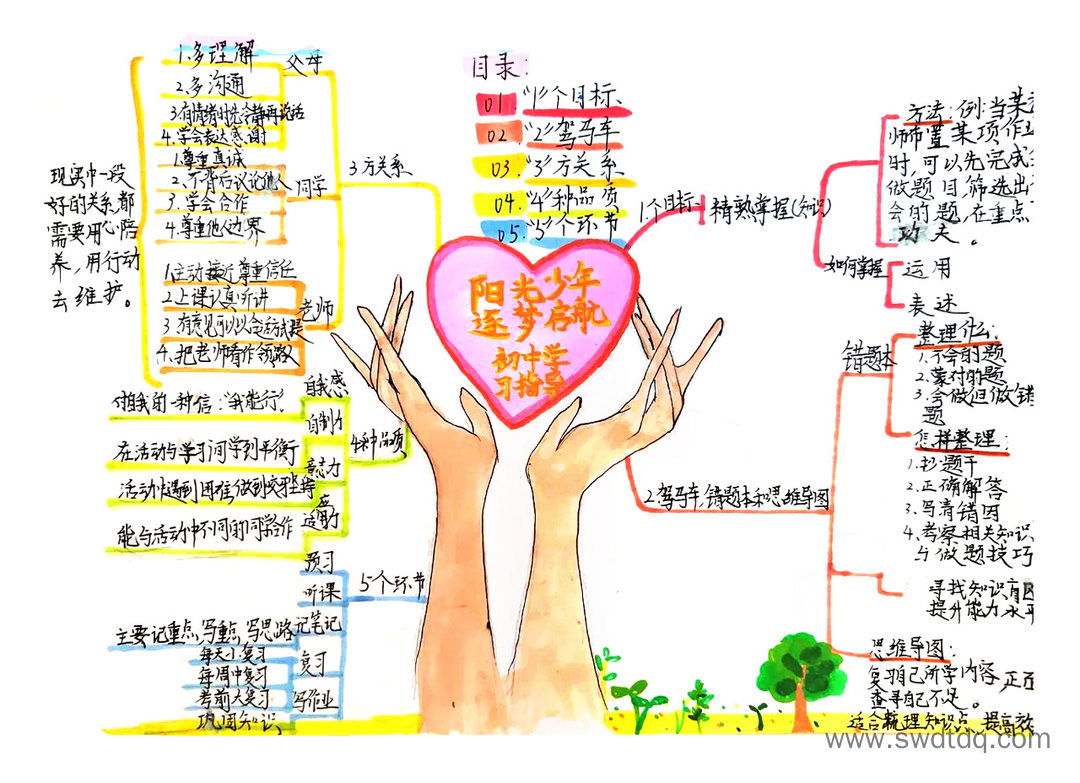 目录：
01 "1"个目标、
02 "2"驾马车
03. "3"方关系
04. "4"种品质
05. "5"个环节
阳光少年
逐梦启航
初中学
习指导
3方关系
父母
1.多理解
2.多沟通
3.有情绪时先冷静再说话
4.学会表达感谢
同学
1.尊重真诚
2.不背后议论他人
3.学会合作
4.尊重他人边界
老师
1.主动接近尊重信任
2.上课认真听讲
4.把老师看作领路人
现实中一段
好的关系都
需要用心陪
养，用行动
去维护。
4种品质
自我感
对自我的一种信："我能行！
自制力
在活动与学习间学到平衡
意志力
活动中遇到困难，做到交坚持
适应力
能与活动中不同的同学合作
5个环节
预习
听课
记笔记
主要记重点，写重点，写思路
复习
每天小复习
每周中复习
考前大复习
写作业
巩固知识
1个目标：
精熟掌握（知识）
方法：例：当某
师布置某项作业
时，可以先完成
做题目筛选出
会的题，在重点
功夫。
如何掌握
运用
表述
2.驾马车，错题本和思维导图
错题本
整理什么：
1.不会的题
2.蒙对的题
3.会做但做错
题
怎样整理：
1.抄题干
2.正确解答
3.写清错因
4.考察相关知识
与做题技巧
寻找知识盲区
提升能力水平
思维导图：
复习自己所学内容，正在
查寻自己不足。
适合梳理知识点，提高效
www.swdtdq.com